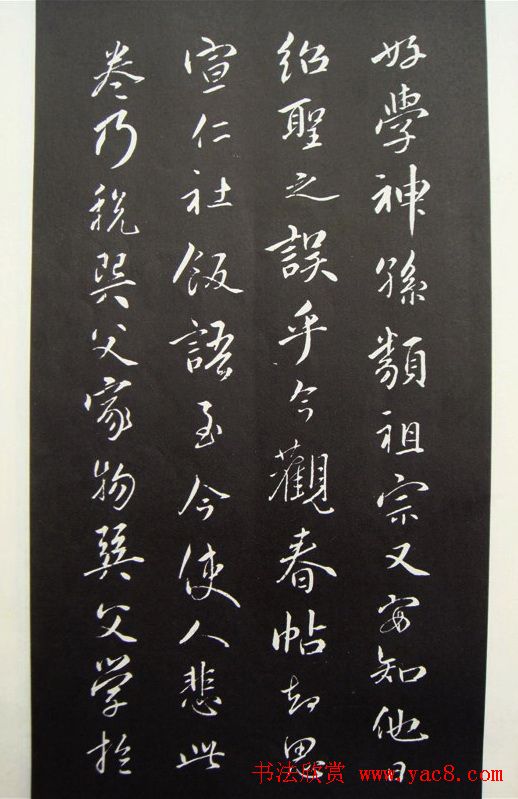 好學神孫類祖宗又安知他日
紹聖之誤乎今觀春帖却思
宣仁社飯語至今使人悲此
卷乃税巽父家物巽父学於
书法欣赏 www.yac8.com